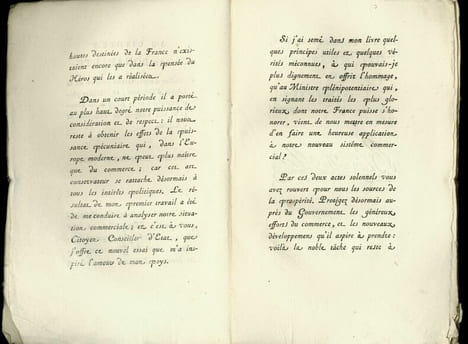 hautes destinées de la France n'exis-
taient encore que dans la pensée du
Héros qui les a réalisées.
Dans un court période il a porté
au plus haut degré notre puissance de
considération et de respect : il nous
reste à obtenir les effets de la puis-
sance pécuniaire qui, dans l'Eu-
rope moderne, ne peut plus naître
que du commerce ; car cet art
conservateur se rattache désormais à
tous les intérêts politiques. Le ré-
sultat de mon premier travail a été
de me conduire à analyser notre situa-
tion commerciale ; et c'est à vous,
Citoyen Conseiller d'Etat, que
j'offre ce nouvel essai que m'a ins-
piré l'amour de mon pays.
Si j'ai semé dans mon livre quel-
ques principes utiles et quelques vé-
rités méconnues, à qui pouvais-je
plus dignement en offrir l'hommage,
qu'au Ministre plénipotentiaire qui,
en signant les traités les plus glo-
rieux dont notre France puisse s'ho-
norer, vient de nous mettre en mesure
d'en faire une heureuse application
à notre nouveau sistême commer-
cial ?
Par ces deux actes solennels vous
avez rouvert pour nous les sources de
la prospérité. Protégez désormais au-
près du Gouvernement les généreux
efforts du commerce, et les nouveaux
développemens qu'il aspire à prendre :
voilà la noble tâche qui reste à